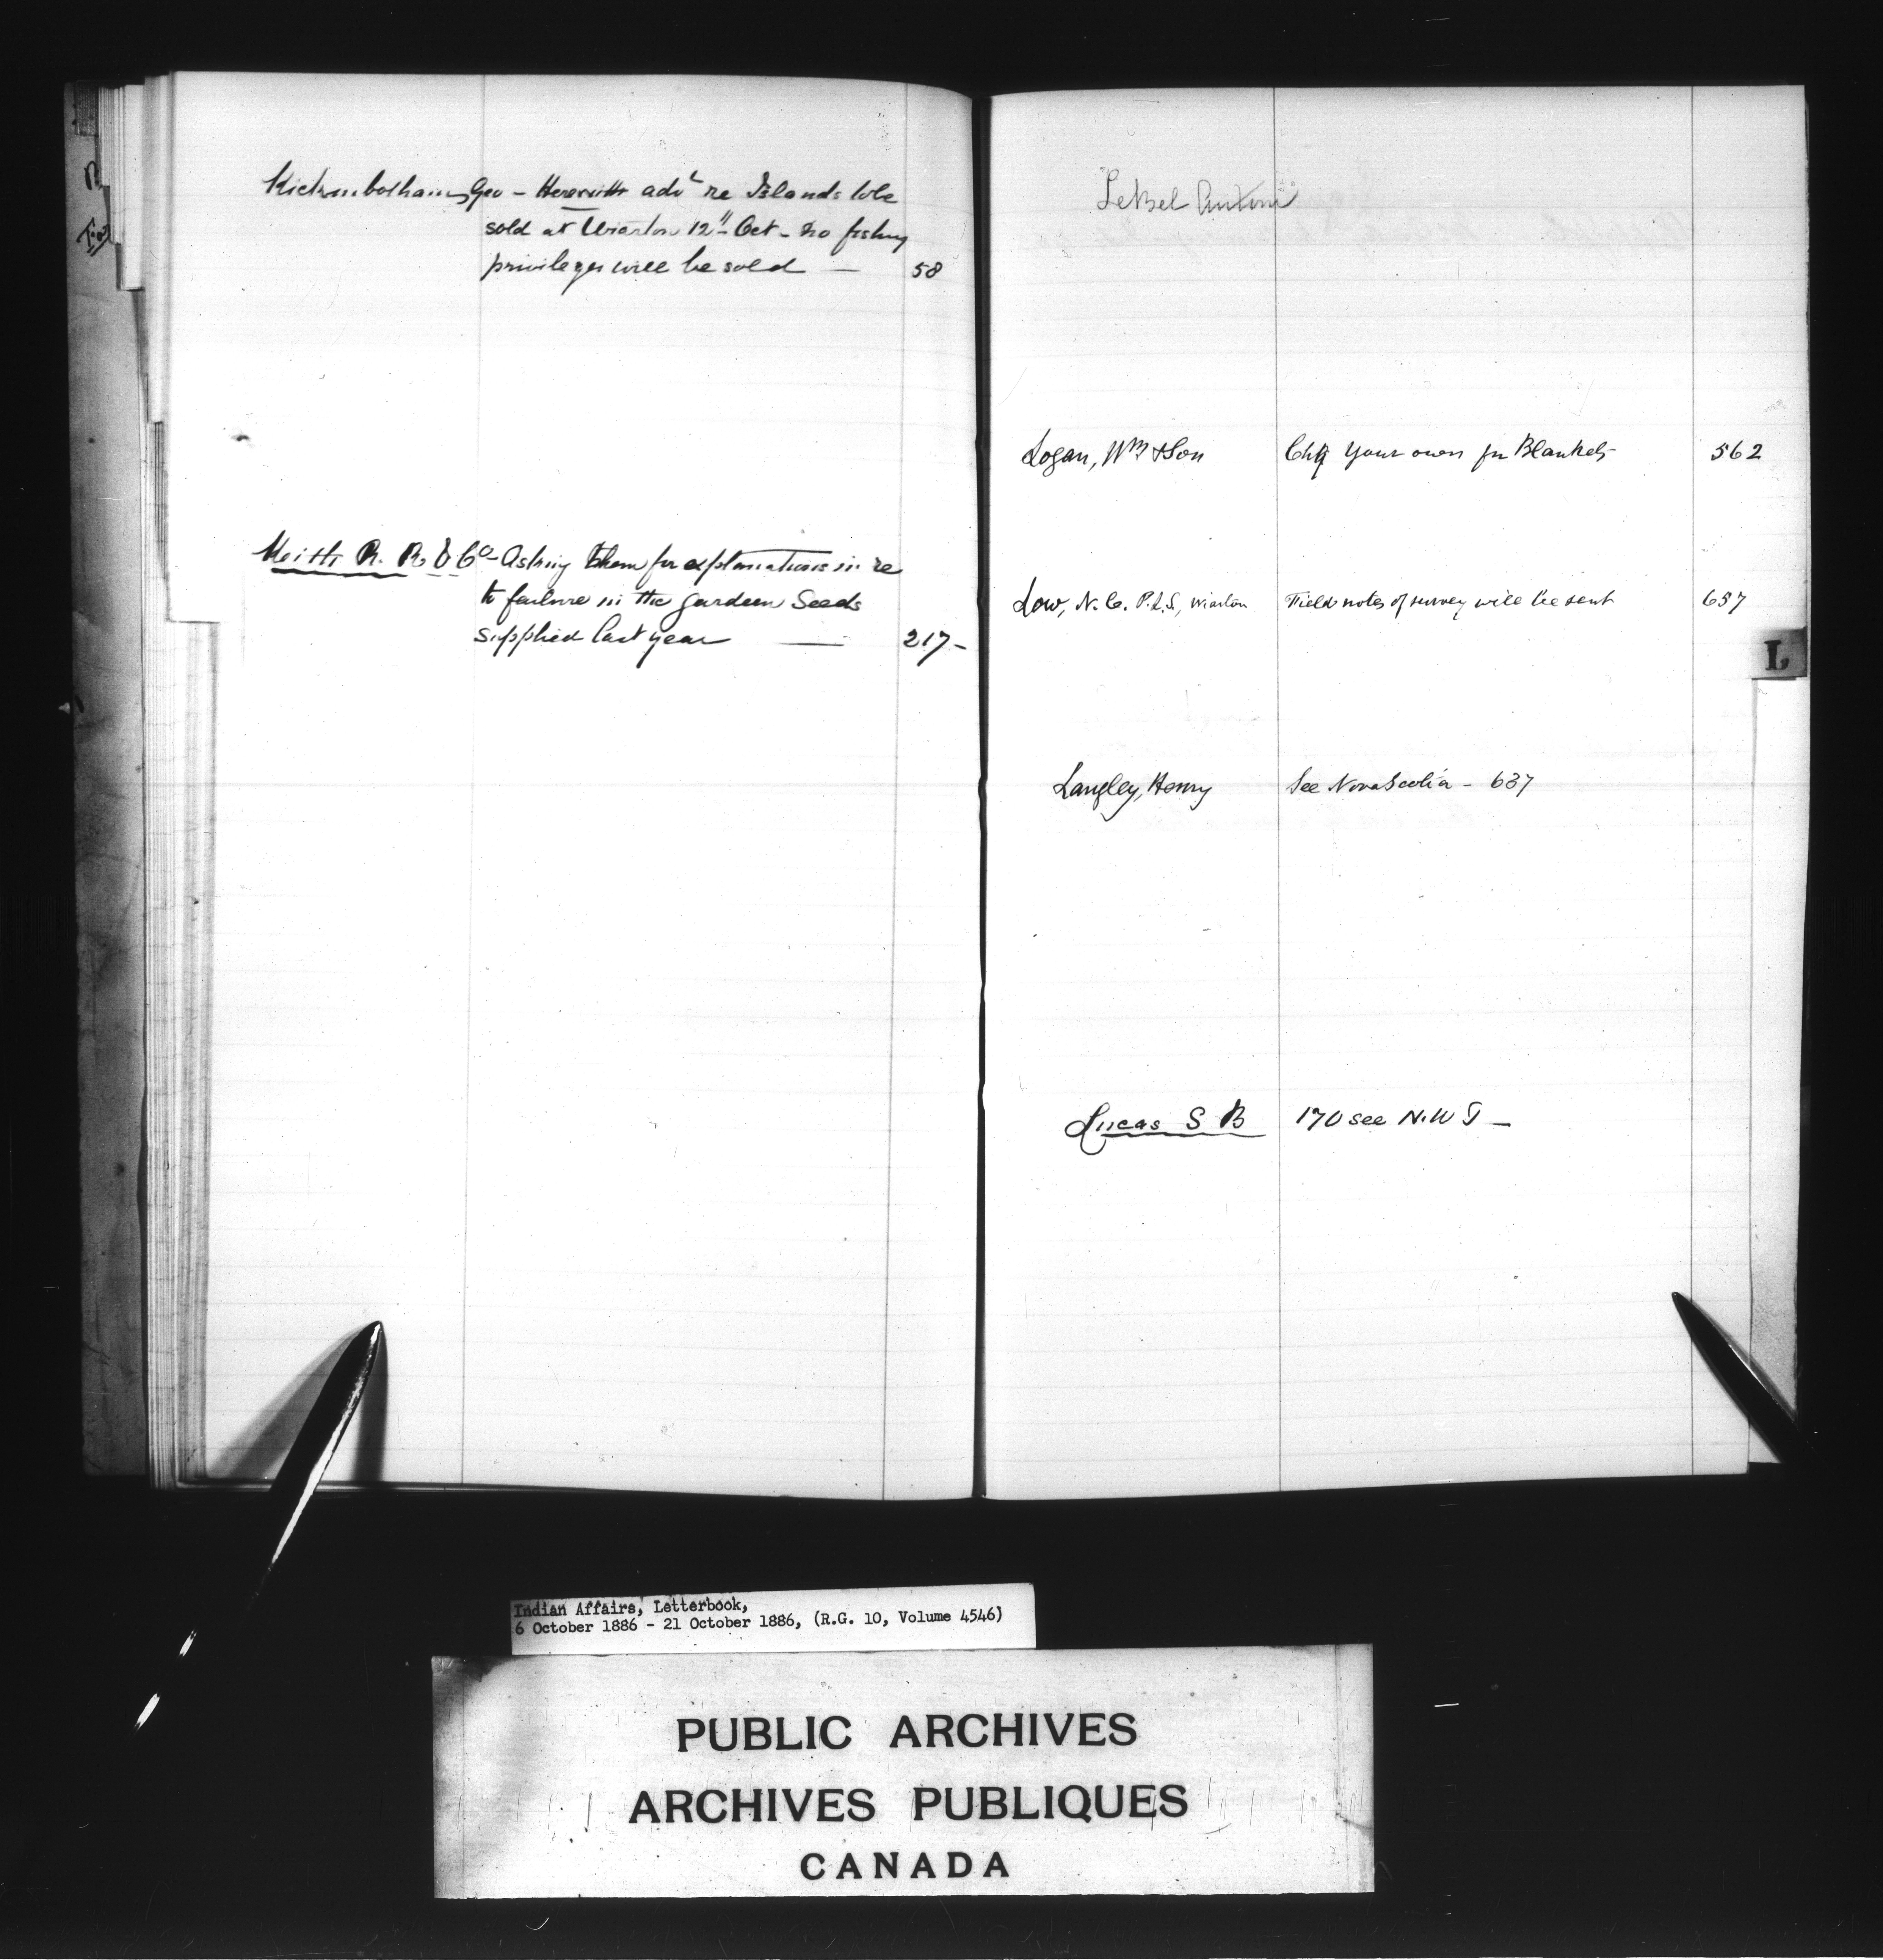 Kickumbotham, Geo - Herewith advt re Islands to be
sold at Wiarton 12" Oct - no fishing
privileges will be sold — 58
Keith R. R. & Co - Asking them for explanations in re
to failure in the garden Seeds
supplied last year — 217 -
LeBel Antoni
Logan, Wm & Son Chq your own for Blankets 562
Low, N. C. P.L.S., Wiarton Field notes of survey will be sent 657
L
Langley, Henry See Nova Scotia - 637
Lucas S B 170 see N.W T -
Indian Affairs, Letterbook,
6 October 1886 - 21 October 1886, (R.G. 10, Volume 4546)
PUBLIC ARCHIVES
ARCHIVES PUBLIQUES
CANADA